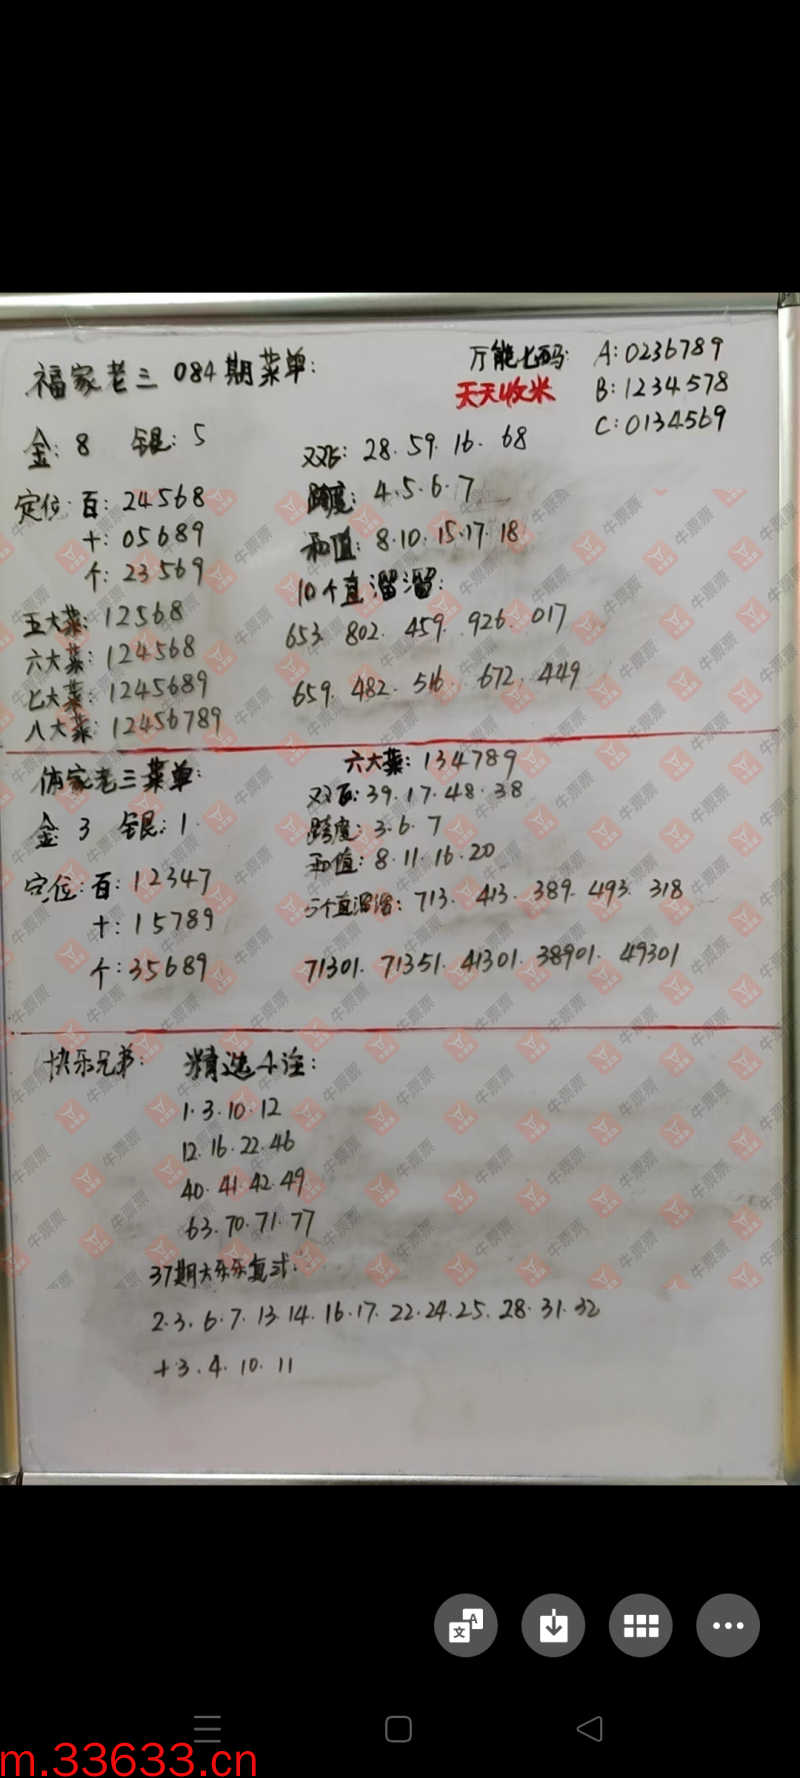 福家老三 084期菜单:
万能七码: A:0236789
天天收米 B:1234578
C:0134569
金: 8 银: 5
定位: 百: 24568
十: 05689
个: 23569
五大菜: 12568
六大菜: 124568
七大菜: 1245689
八大菜: 12456789
双飞: 28. 59. 16. 68
跨度: 4.5.6.7
和值: 8.10.15.17.18
10个直溜溜:
653. 802. 459. 926. 017
659. 482. 516. 672. 449
体家老三菜单:
金 3 银: 1.
定位: 百: 12347
十: 15789
个: 35689
六大菜: 134789
双飞: 39.17.48.38
跨度: 3.6.7
和值: 8.11.16.20
5个直溜溜: 713. 413. 389. 493. 318
71301. 71351. 41301. 38901. 49301
快乐兄弟: 精选4注:
1.3.10.12
12.16.22.46
40.41.42.49
63.70.71.77
37期大乐乐复式:
2.3.6.7.13.14.16.17.22.24.25.28.31.32
+3.4.10.11
牛票票
m.33633.cn